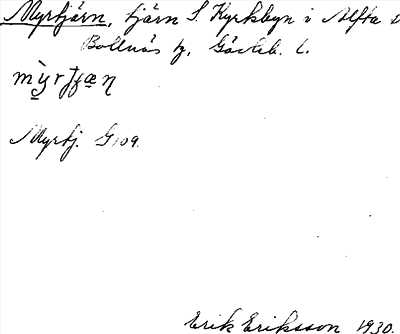 Myrtjärn, tjärn S. Kyrkbyn i Alfta s
Bollnäs tg. Gävleb. l.
Myrtj. G 109.
Erik Eriksson 1930.